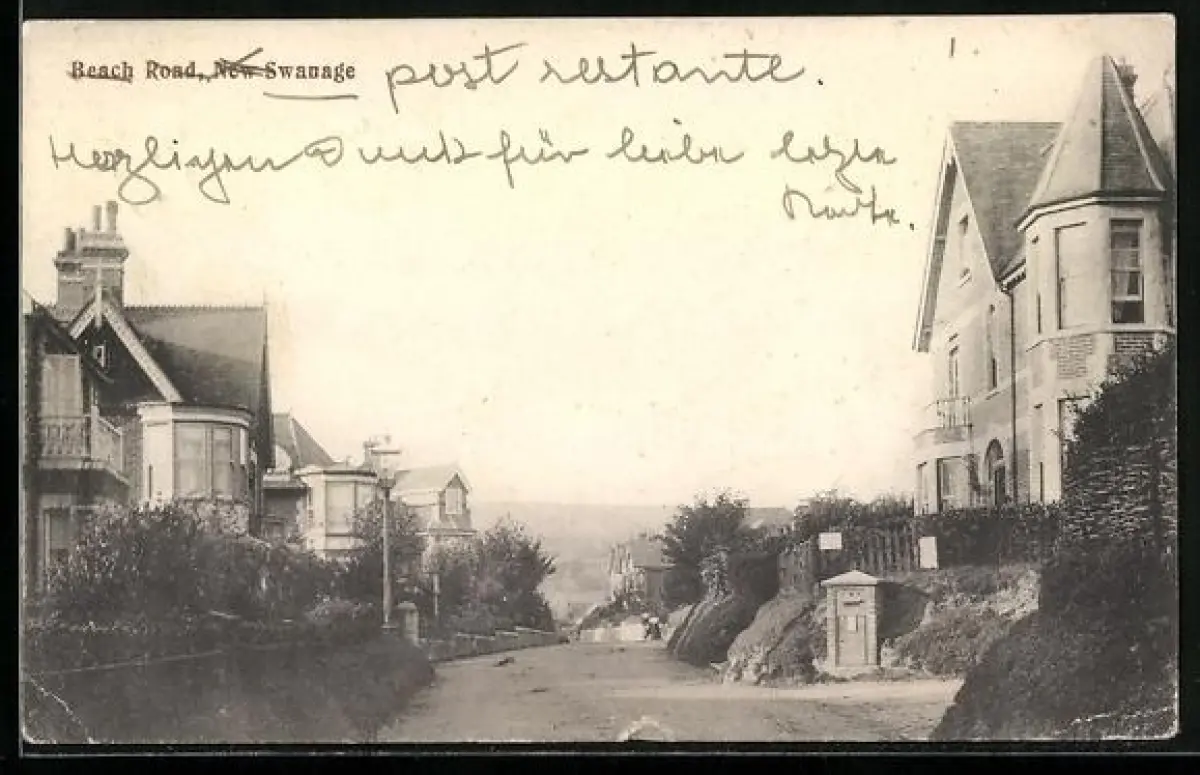 Beach Road, New Swanage
post restante.
Herzligen Dank für liebe letzte
Karte.